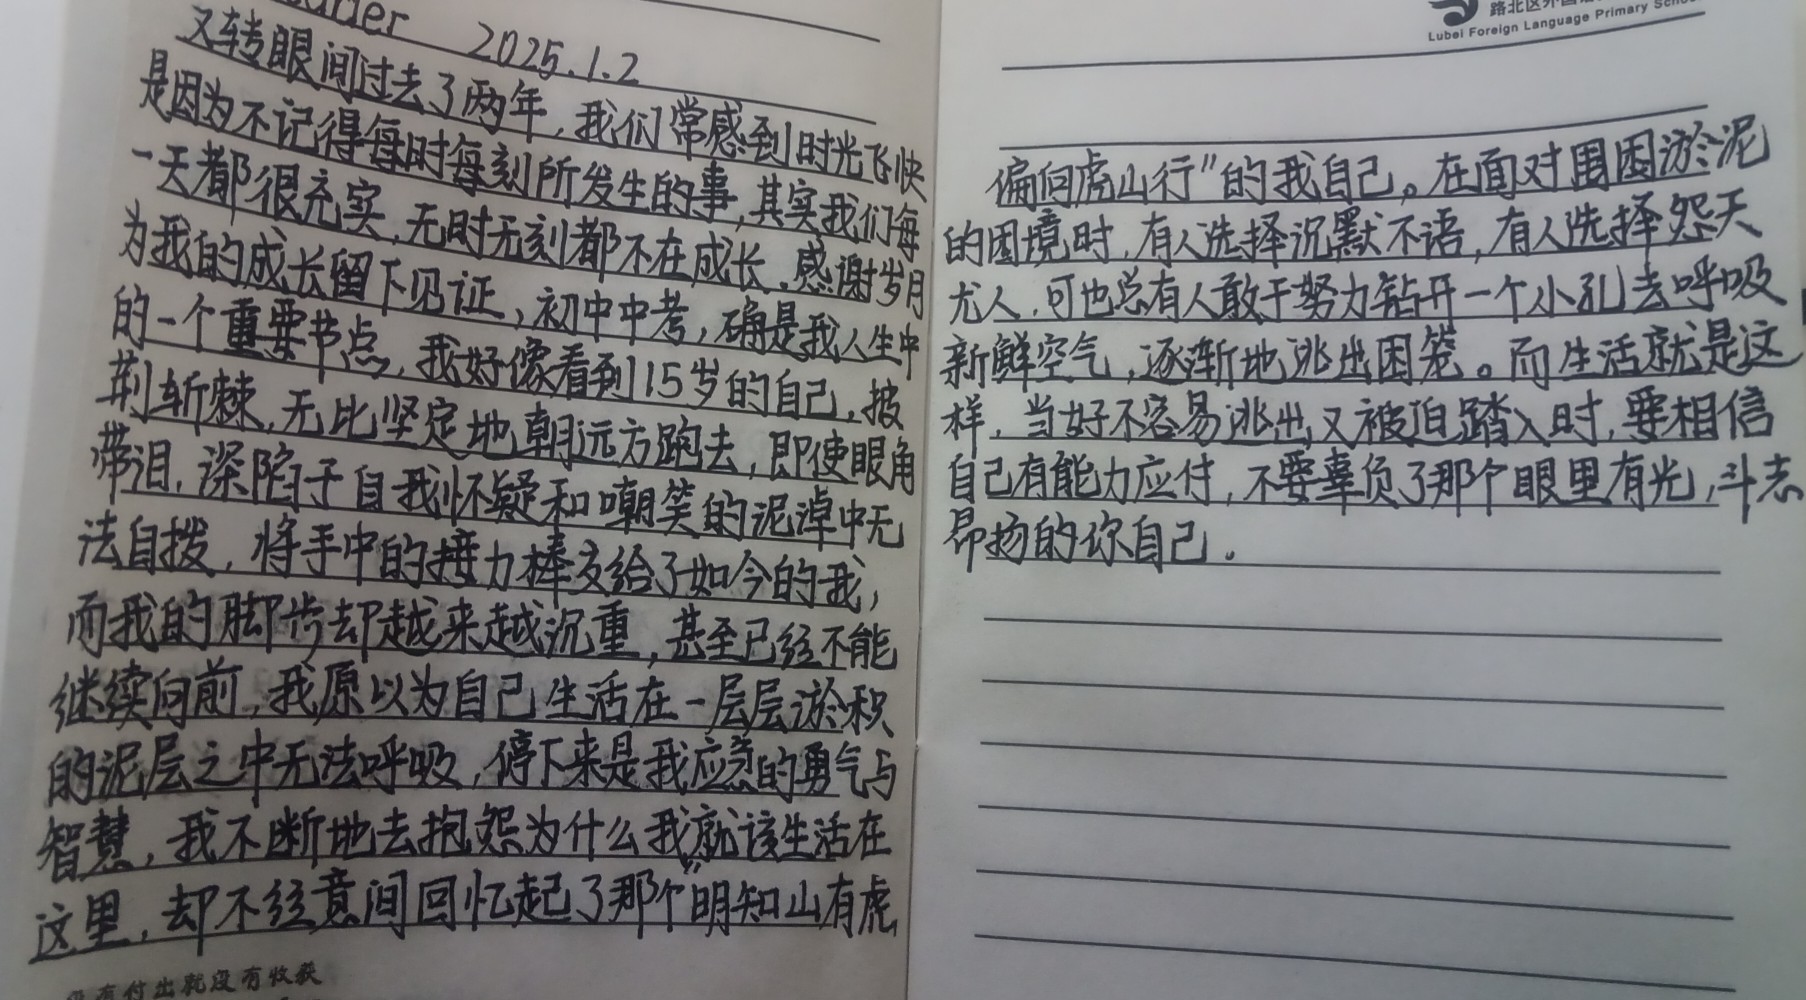 2025.1.2
又转眼间过去了两年，我们常感到时光飞快
是因为不记得每时每刻所发生的事，其实我们每
一天都很充实，无时无刻都不在成长，感谢岁月
为我的成长留下见证，初中中考，确是我人生中
的一个重要节点，我好像看到15岁的自己，披
荆斩棘，无比坚定地朝远方跑去，即使眼角
带泪，深陷于自我怀疑和嘲笑的泥淖中无
法自拨，将手中的接力棒交给了如今的我，
而我的脚步却越来越沉重，甚至已经不能
继续向前，我原以为自己生活在一层层淤积
的泥层之中无法呼吸，停下来是我应急的勇气与
智慧，我不断地去抱怨为什么我就该生活在
这里，却不经意间回忆起了那个“明知山有虎
没有付出就没有收获
Lubei Foreign Language Primary
偏向虎山行”的我自己。在面对围困淤泥
的困境时，有人选择沉默不语，有人选择怨天
尤人，可也总有人敢于努力钻开一个小孔去呼吸
新鲜空气，逐渐地逃出困笼。而生活就是这
样，当好不容易逃出又被迫踏入时，要相信
自己有能力应付，不要辜负了那个眼里有光，斗志
昂扬的你自己。